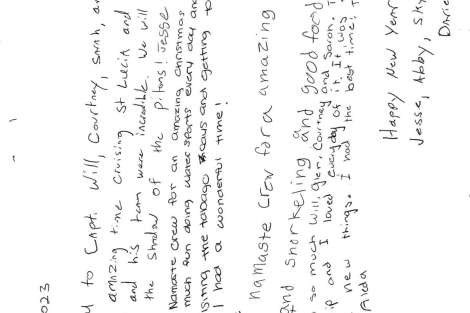 2023
to Capt. Will, Courtney, Sarah, an
amazing time cruising St Lucia and
and his team were incredible. We will
the shadow of the pitons! Jesse
Namaste Crew for an amazing christmas
much fun doing watersports every day and
isiting the tobago cays and getting to
I had a wonderful time!
namaste crew for a amazing
and snorkeling and good food
so much Will, Glen, Courtney and Saron. T
ip and I loved everyday of it. It was
new things. I had the best time, T
Alda
Happy New Year
Jesse, Abby, Sky